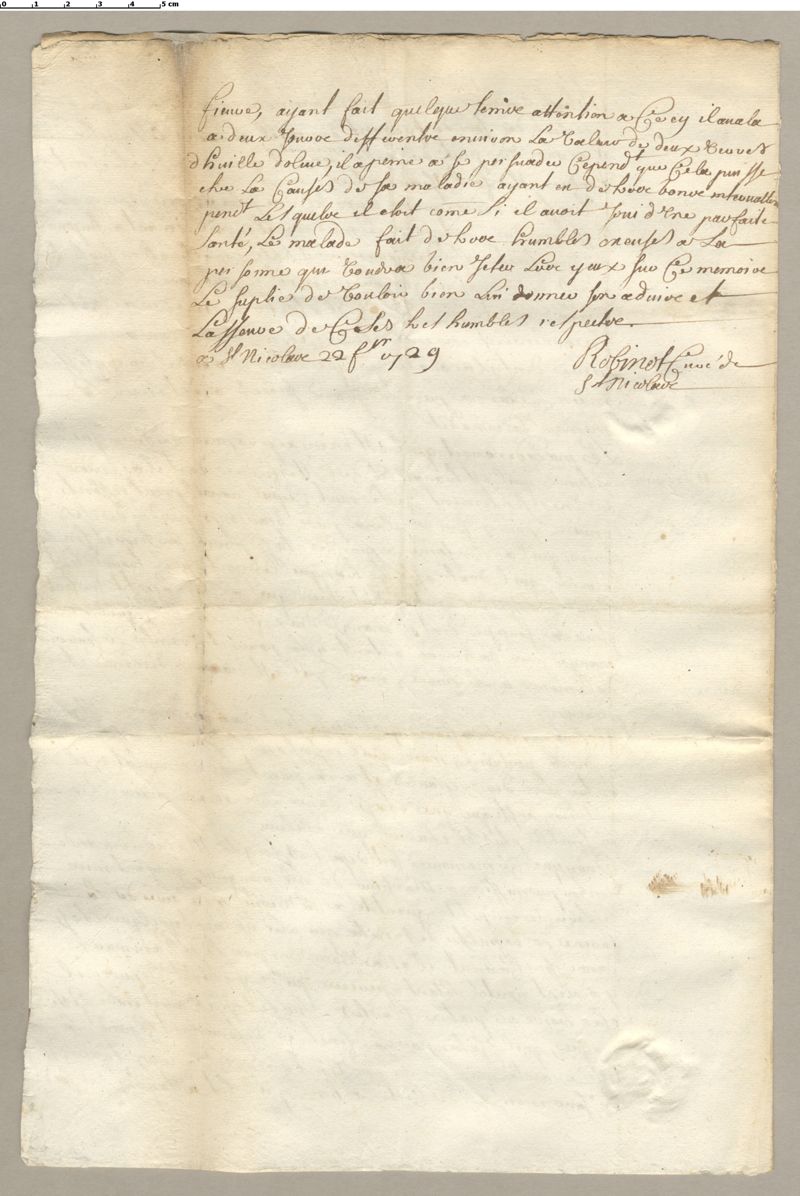 0 1 2 3 4 5 cm
fieuve, aijant fait quelque tems attention a Cecy il auala
a deux jours differents environ La Valeur de deux Verres
d'huille dolive, il a peine a se persuader Cepend^t que Cela puisse
etre La Causes de sa maladie ayant eu dehors bonne
pend^t Lesquels il etoit come si il auoit joui d'Une parfaite
santé, Le malade fait de hors humbles excuses a La
personne qui Voudra bien Jeter Les yeux sur Ce memoire
Le suplie de Vouloir bien Lui donner son aduis et
L'asseure de Ses tres humbles respects.
a S^t Nicolas 22 f^er 1729 Robinot Curé de
S^t Nicolas